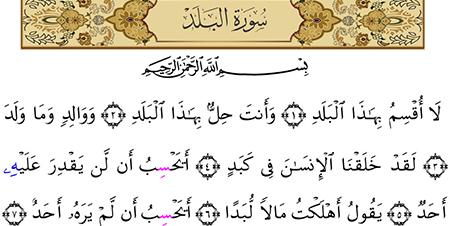 سُورَةُ الْبَلَدِ
بِسْمِ اللَّهِ الرَّحْمَٰنِ الرَّحِيمِ
لَا أُقْسِمُ بِهَٰذَا ٱلْبَلَدِ ﴿١﴾ وَأَنتَ حِلٌّۢ بِهَٰذَا ٱلْبَلَدِ ﴿٢﴾ وَوَالِدٍ وَمَا وَلَدَ
﴿٣﴾ لَقَدْ خَلَقْنَا ٱلْإِنسَٰنَ فِى كَبَدٍ ﴿٤﴾ أَيَحْسِبُ أَن لَّن يَقْدِرَ عَلَيْهِۦ
أَحَدٌ ﴿٥﴾ يَقُولُ أَهْلَكْتُ مَالًا لُّبَدًا ﴿٦﴾ أَيَحْسِبُ أَن لَّمْ يَرَهُۥ أَحَدٌ ﴿٧﴾